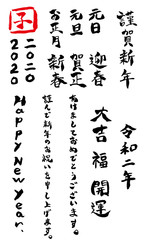 謹賀新年
元日 迎春
元旦 賀正
お正月 新春
令和二年
大吉 福 開運
あけましておめでとうございます。
謹んで新年のお祝いを申し上げます。
子
二〇二〇
2020
Happy New Year.